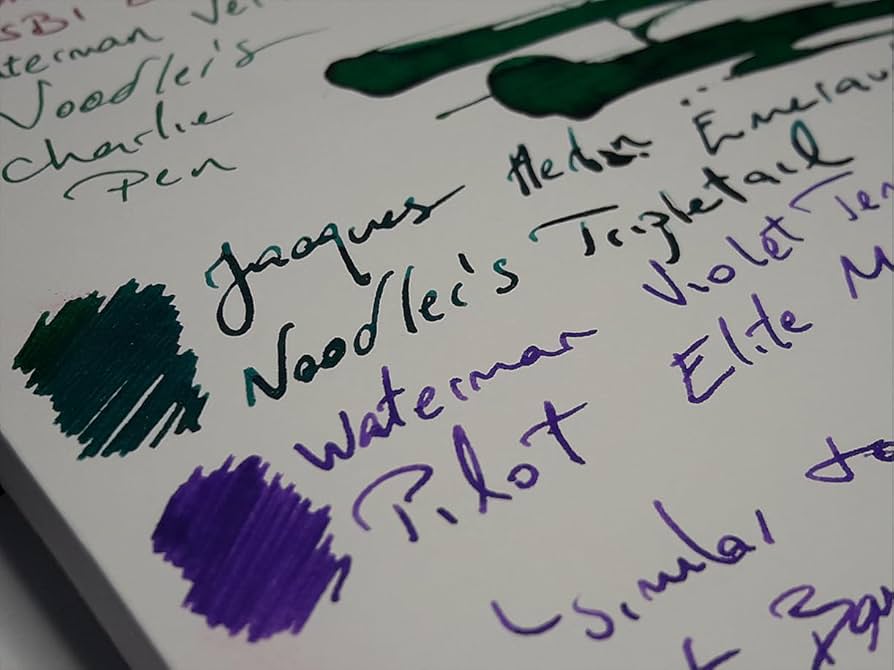 SBI
terman Ver
Noodler's
Charlie
Pen
Jacques Herbin Emerau
Noodler's Tripletail
Waterman Violet Ten
Pilot Elite M
similar to